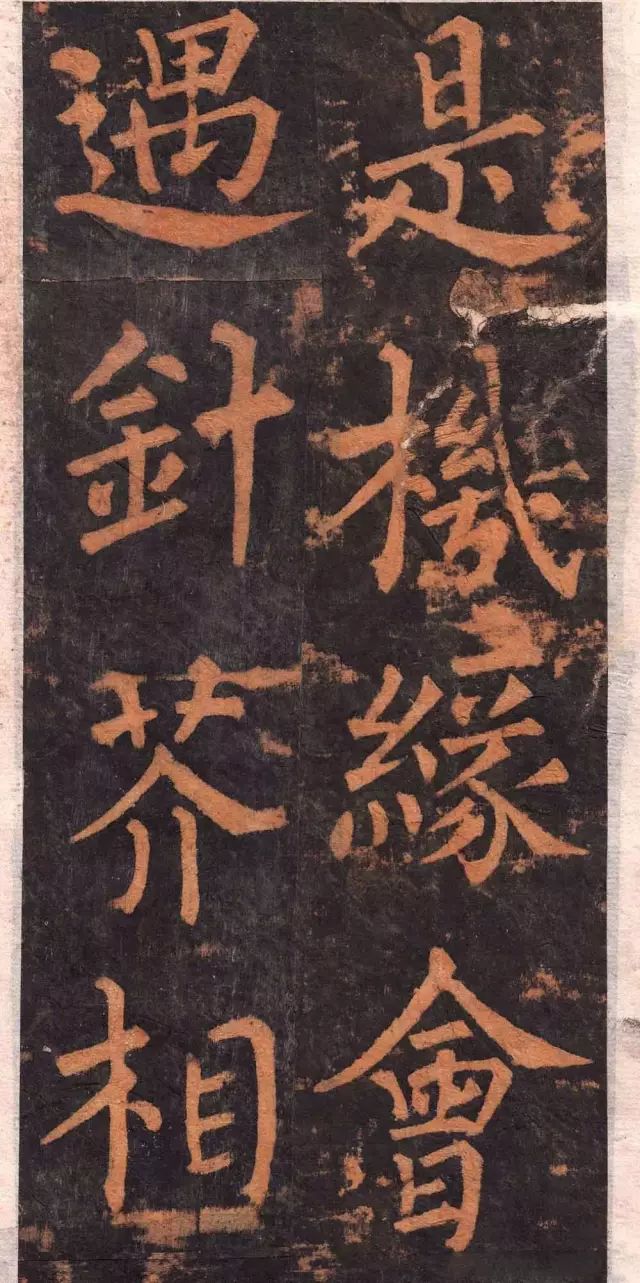 是機緣會
遇針芥相